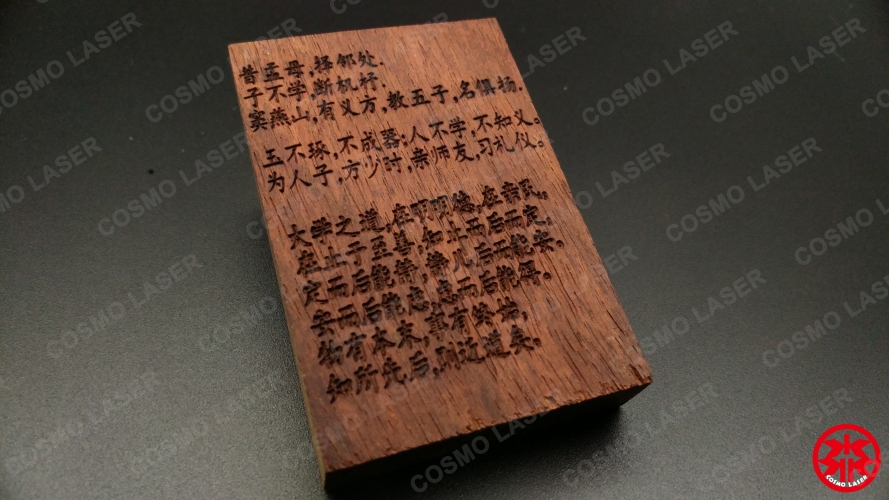 昔孟母,择邻处.
子不学,断机杼.
窦燕山,有义方,教五子,名俱扬.
玉不琢,不成器;人不学,不知义。
为人子,方少时,亲师友,习礼仪。
大学之道,在明明德,在亲民,
在止于至善;知止而后而定,
定而后能静,静儿后而能安。
安而后能虑,虑而后能得。
物有本末,事有终始,
知所先后,则近道矣。
COSMO LASER